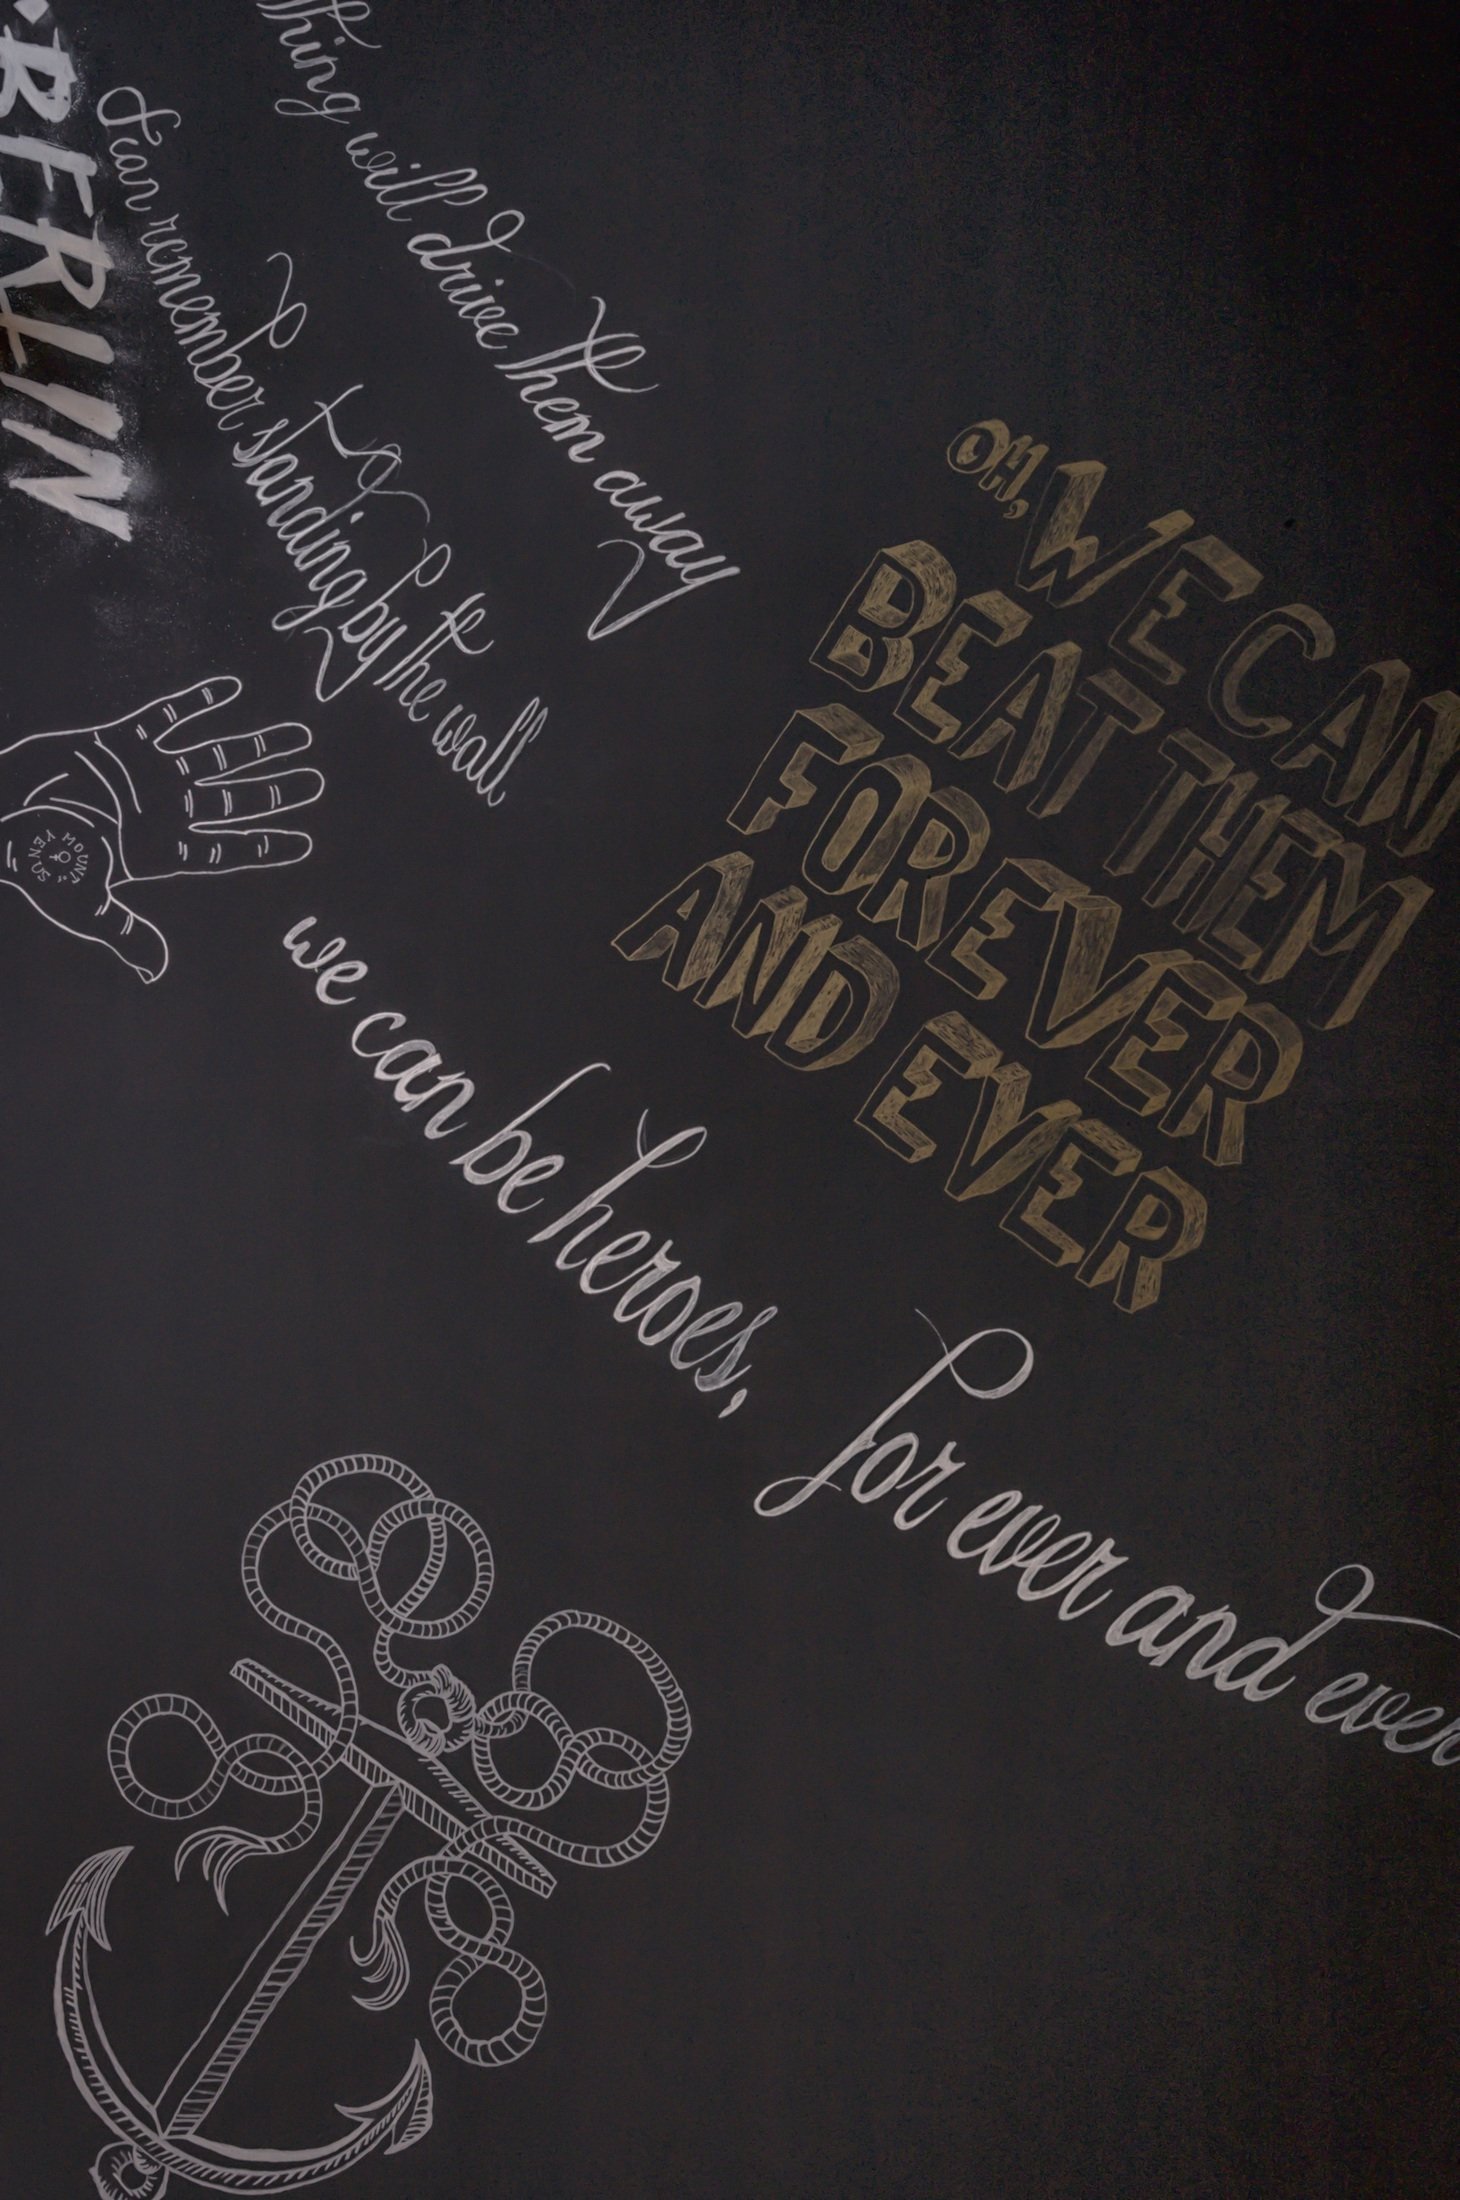 BERLIN
thing will drive them away
I can remember standing by the wall
OH, WE CAN
BEAT THEM
FOREVER
AND EVER
MOUNT
VENUS
we can be heroes,
for ever and ever